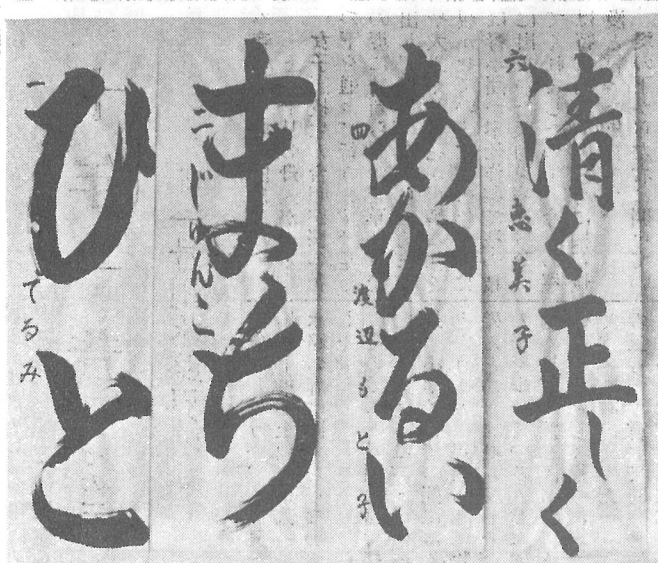 清く正しく
六 恵美子
あかるい
四 渡辺もと子
まち
二 じゅんこ
ひと
一 てるみ